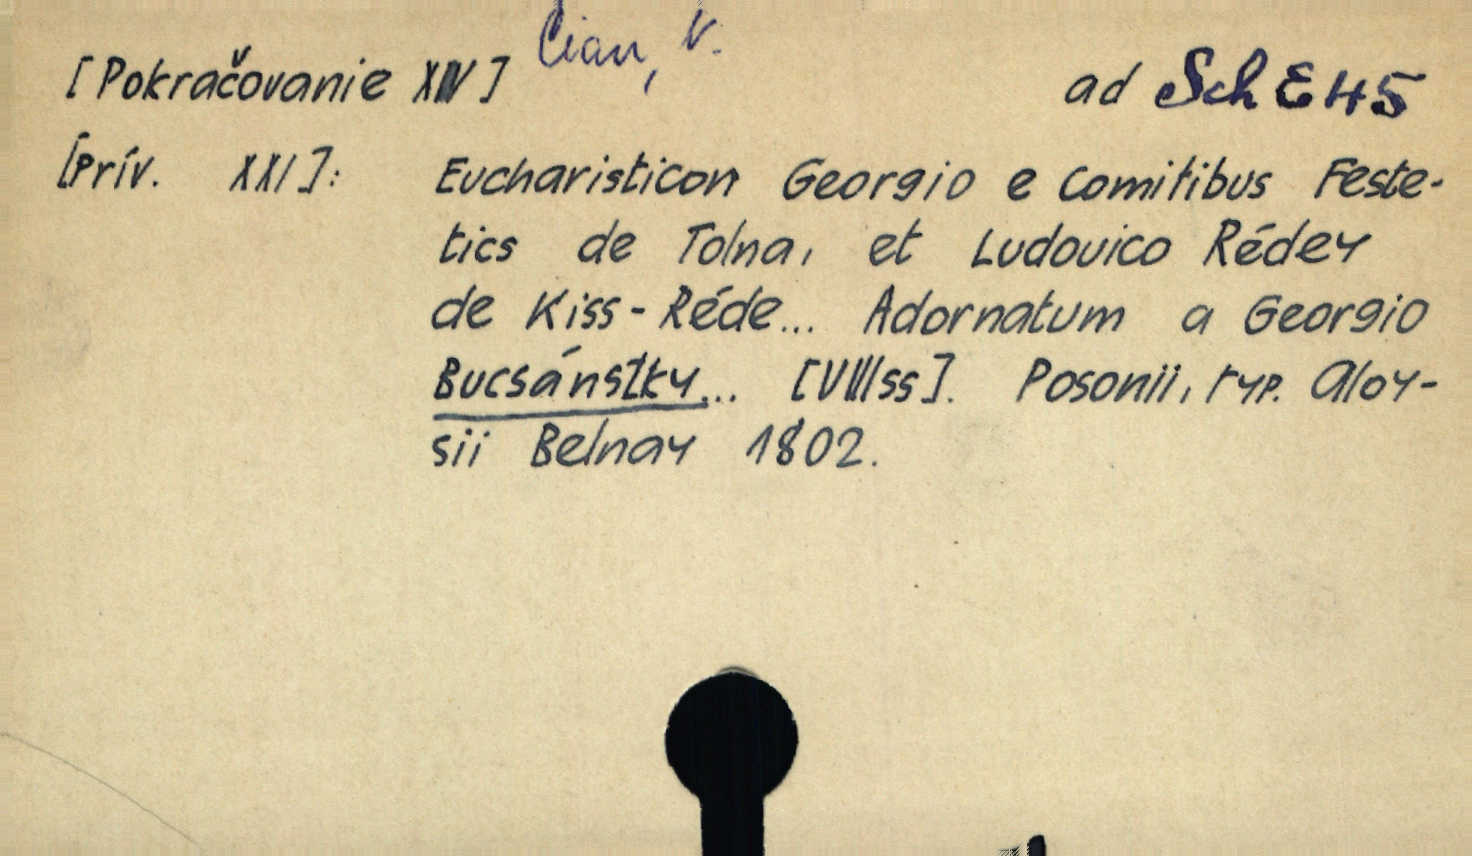 Cian, V.
[Pokračovanie XIV] ad Sch E 45
[Prív. XXI]: Eucharisticon Georgio e Comitibus Feste-
tics de Tolna, et Ludovico Rédey
de Kiss-Réde... Adornatum a Georgio
Bucsánszky... [VIIIss]. Posonii, typ. Aloy-
sii Belnay 1802.